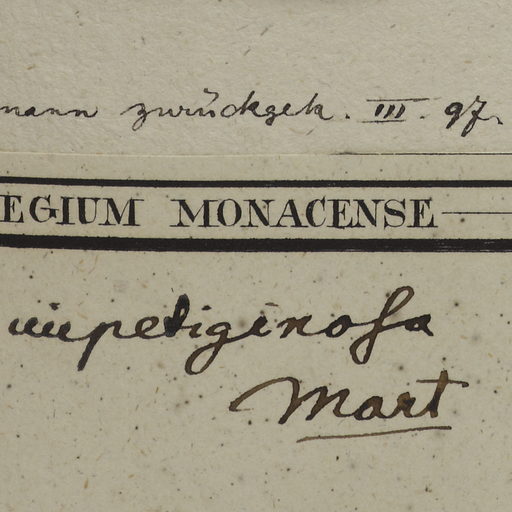 mann zurückgek. III. 97.
EGIUM MONACENSE
impetiginosa
Mart